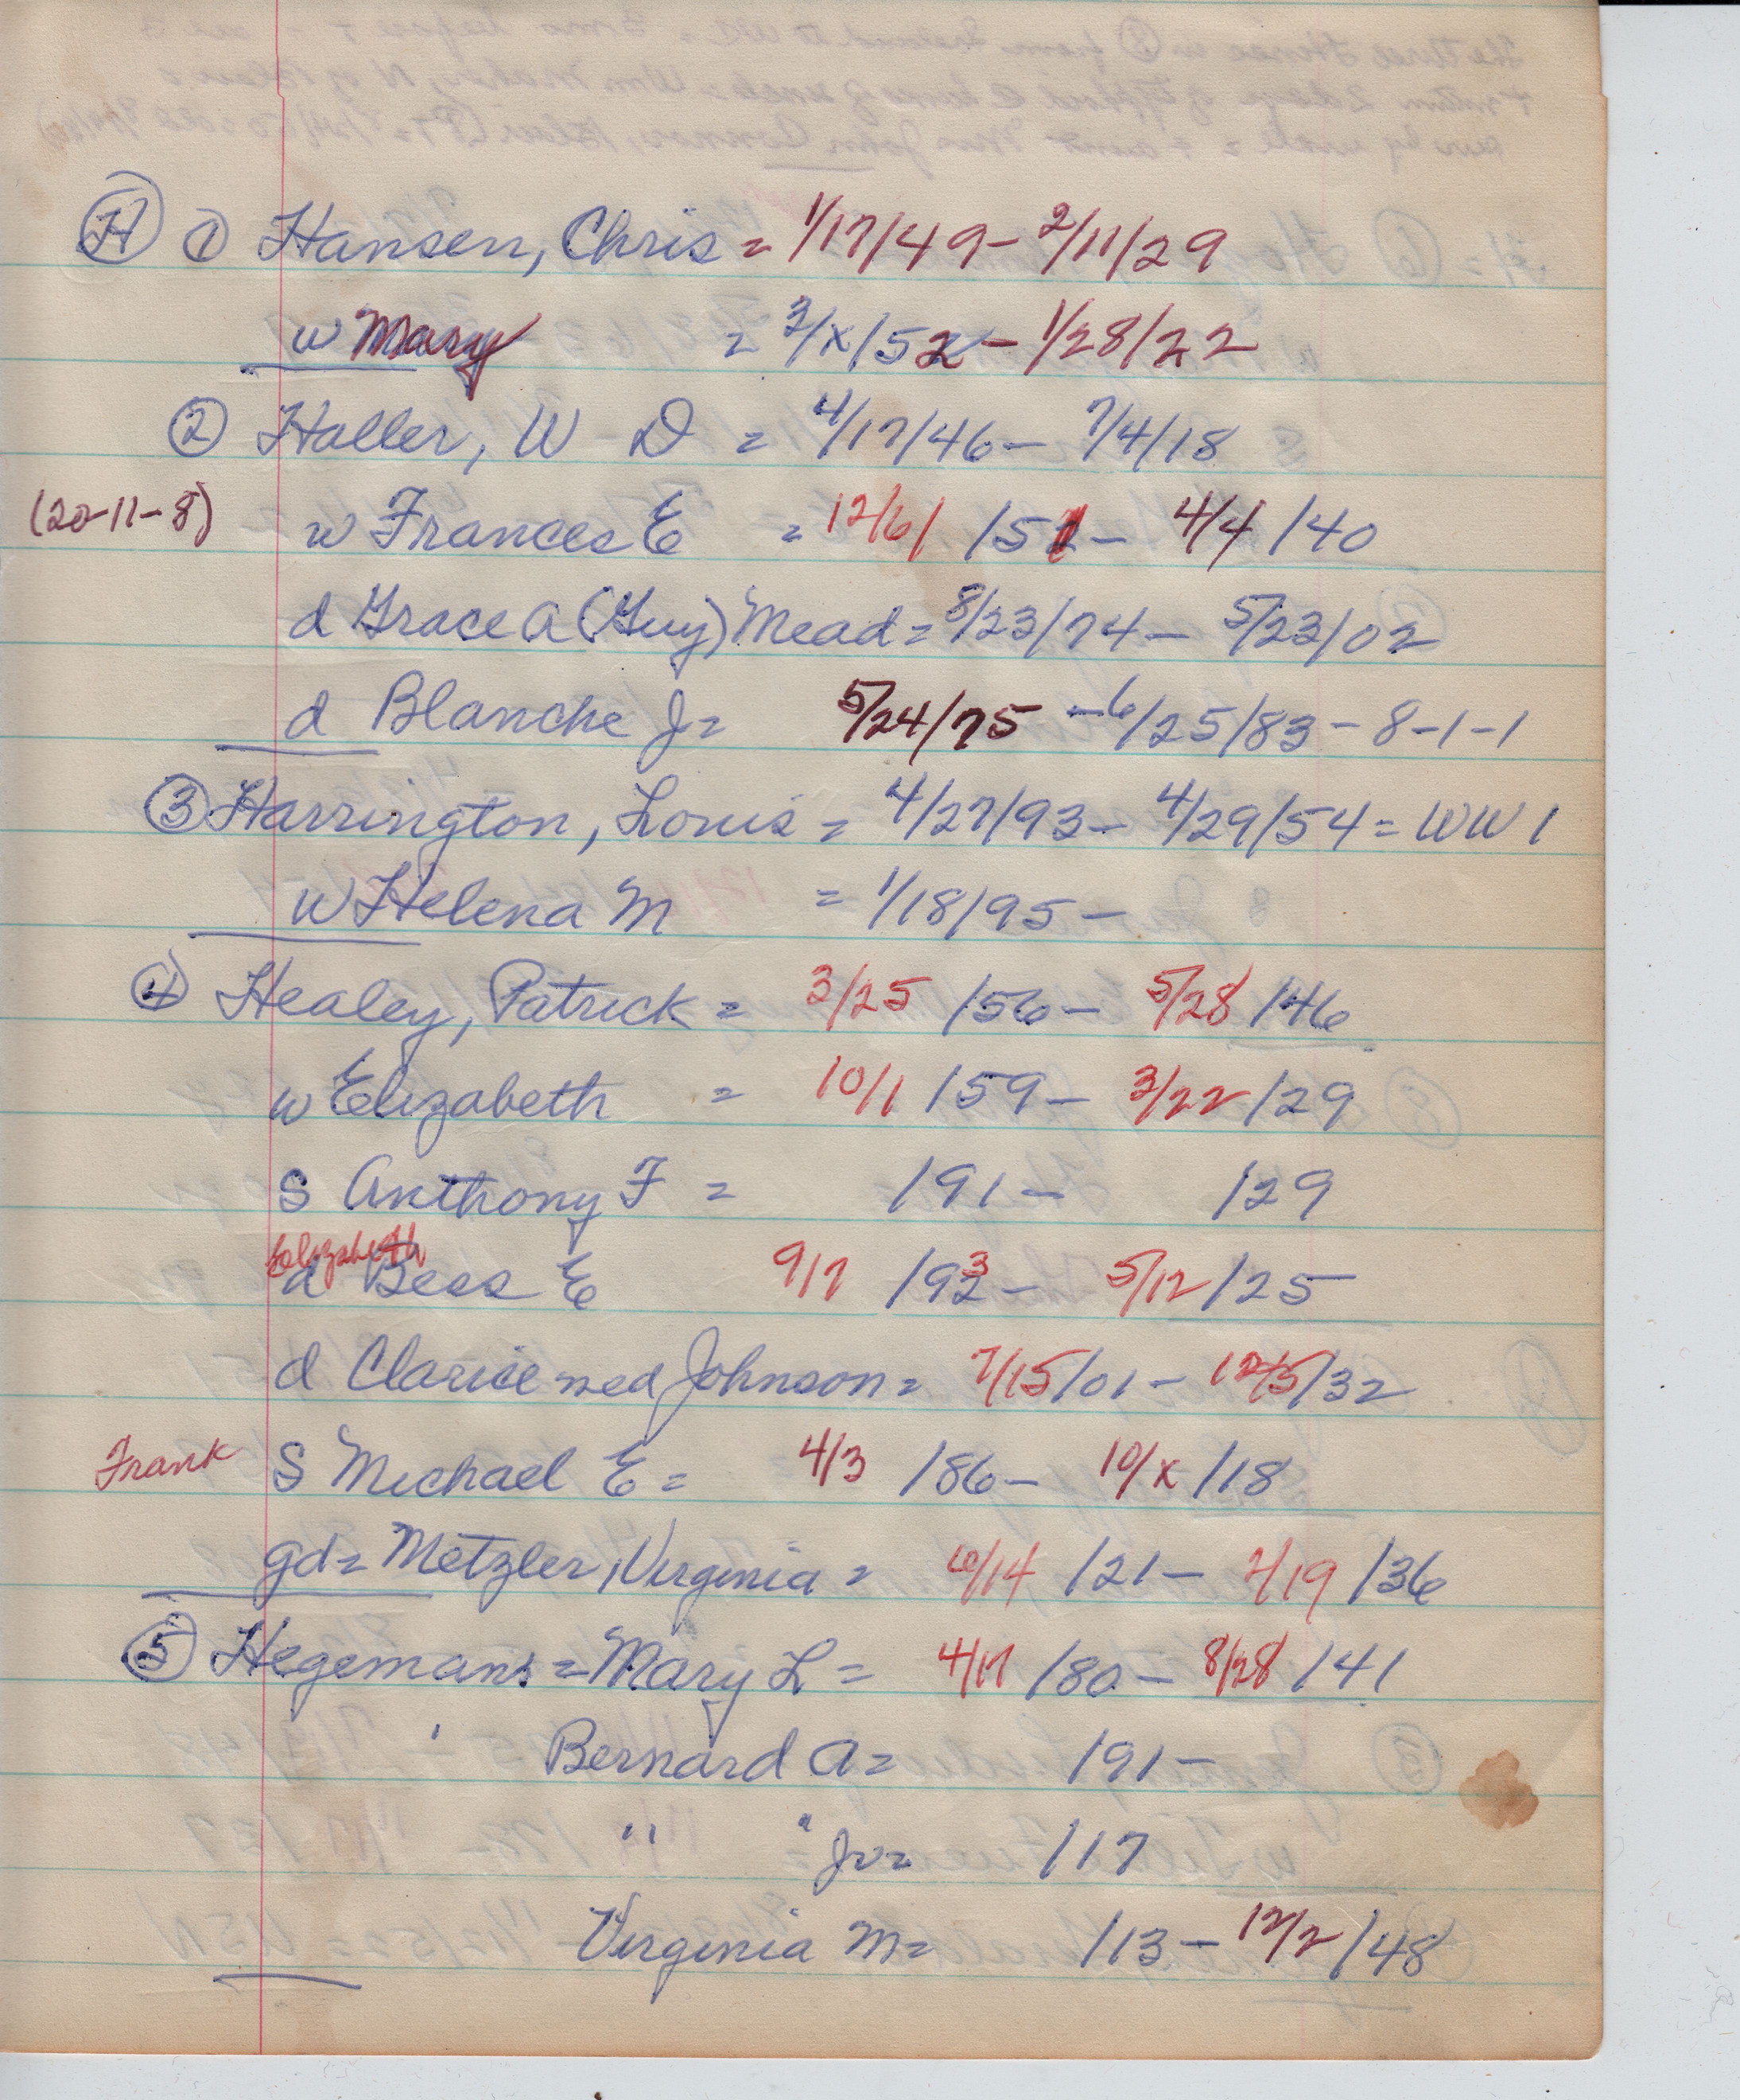 H 1 Hansen, Chris = 1/17/49 - 2/11/29
w Mary = 3/x/52 - 1/28/22
2 Haller, W D = 4/17/46 - 7/4/18
(20-11-8) w Frances E = 12/6/ /51 - 4/4/40
d Grace A (Guy) Mead = 8/23/74 - 5/23/02
d Blanche J = 5/24/75 - 6/25/83 - 8-1-1
3 Harrington, Louis = 4/27/93 - 4/29/54 = WW 1
w Helena M = 1/18/95 -
4 Healey, Patrick = 3/25 /56 - 5/28 /46
w Elizabeth = 10/1 /59 - 3/22 /29
S Anthony F = /91 - /29
Elizabeth
d Bess E 9/7 /93 - 5/12 /25
d Clarice ned Johnson = 7/15/01 - /32
Frank S Michael E = 4/3 /86 - 10/x /18
gd = Metzler, Virginia = 10/14 /21 - 2/19 /36
5 Hegemans = Mary L = 4/17 /80 - 8/28 /41
' Bernard A = /91 -
" " Jr = /17
Virginia M = /13 - 12/2 /48